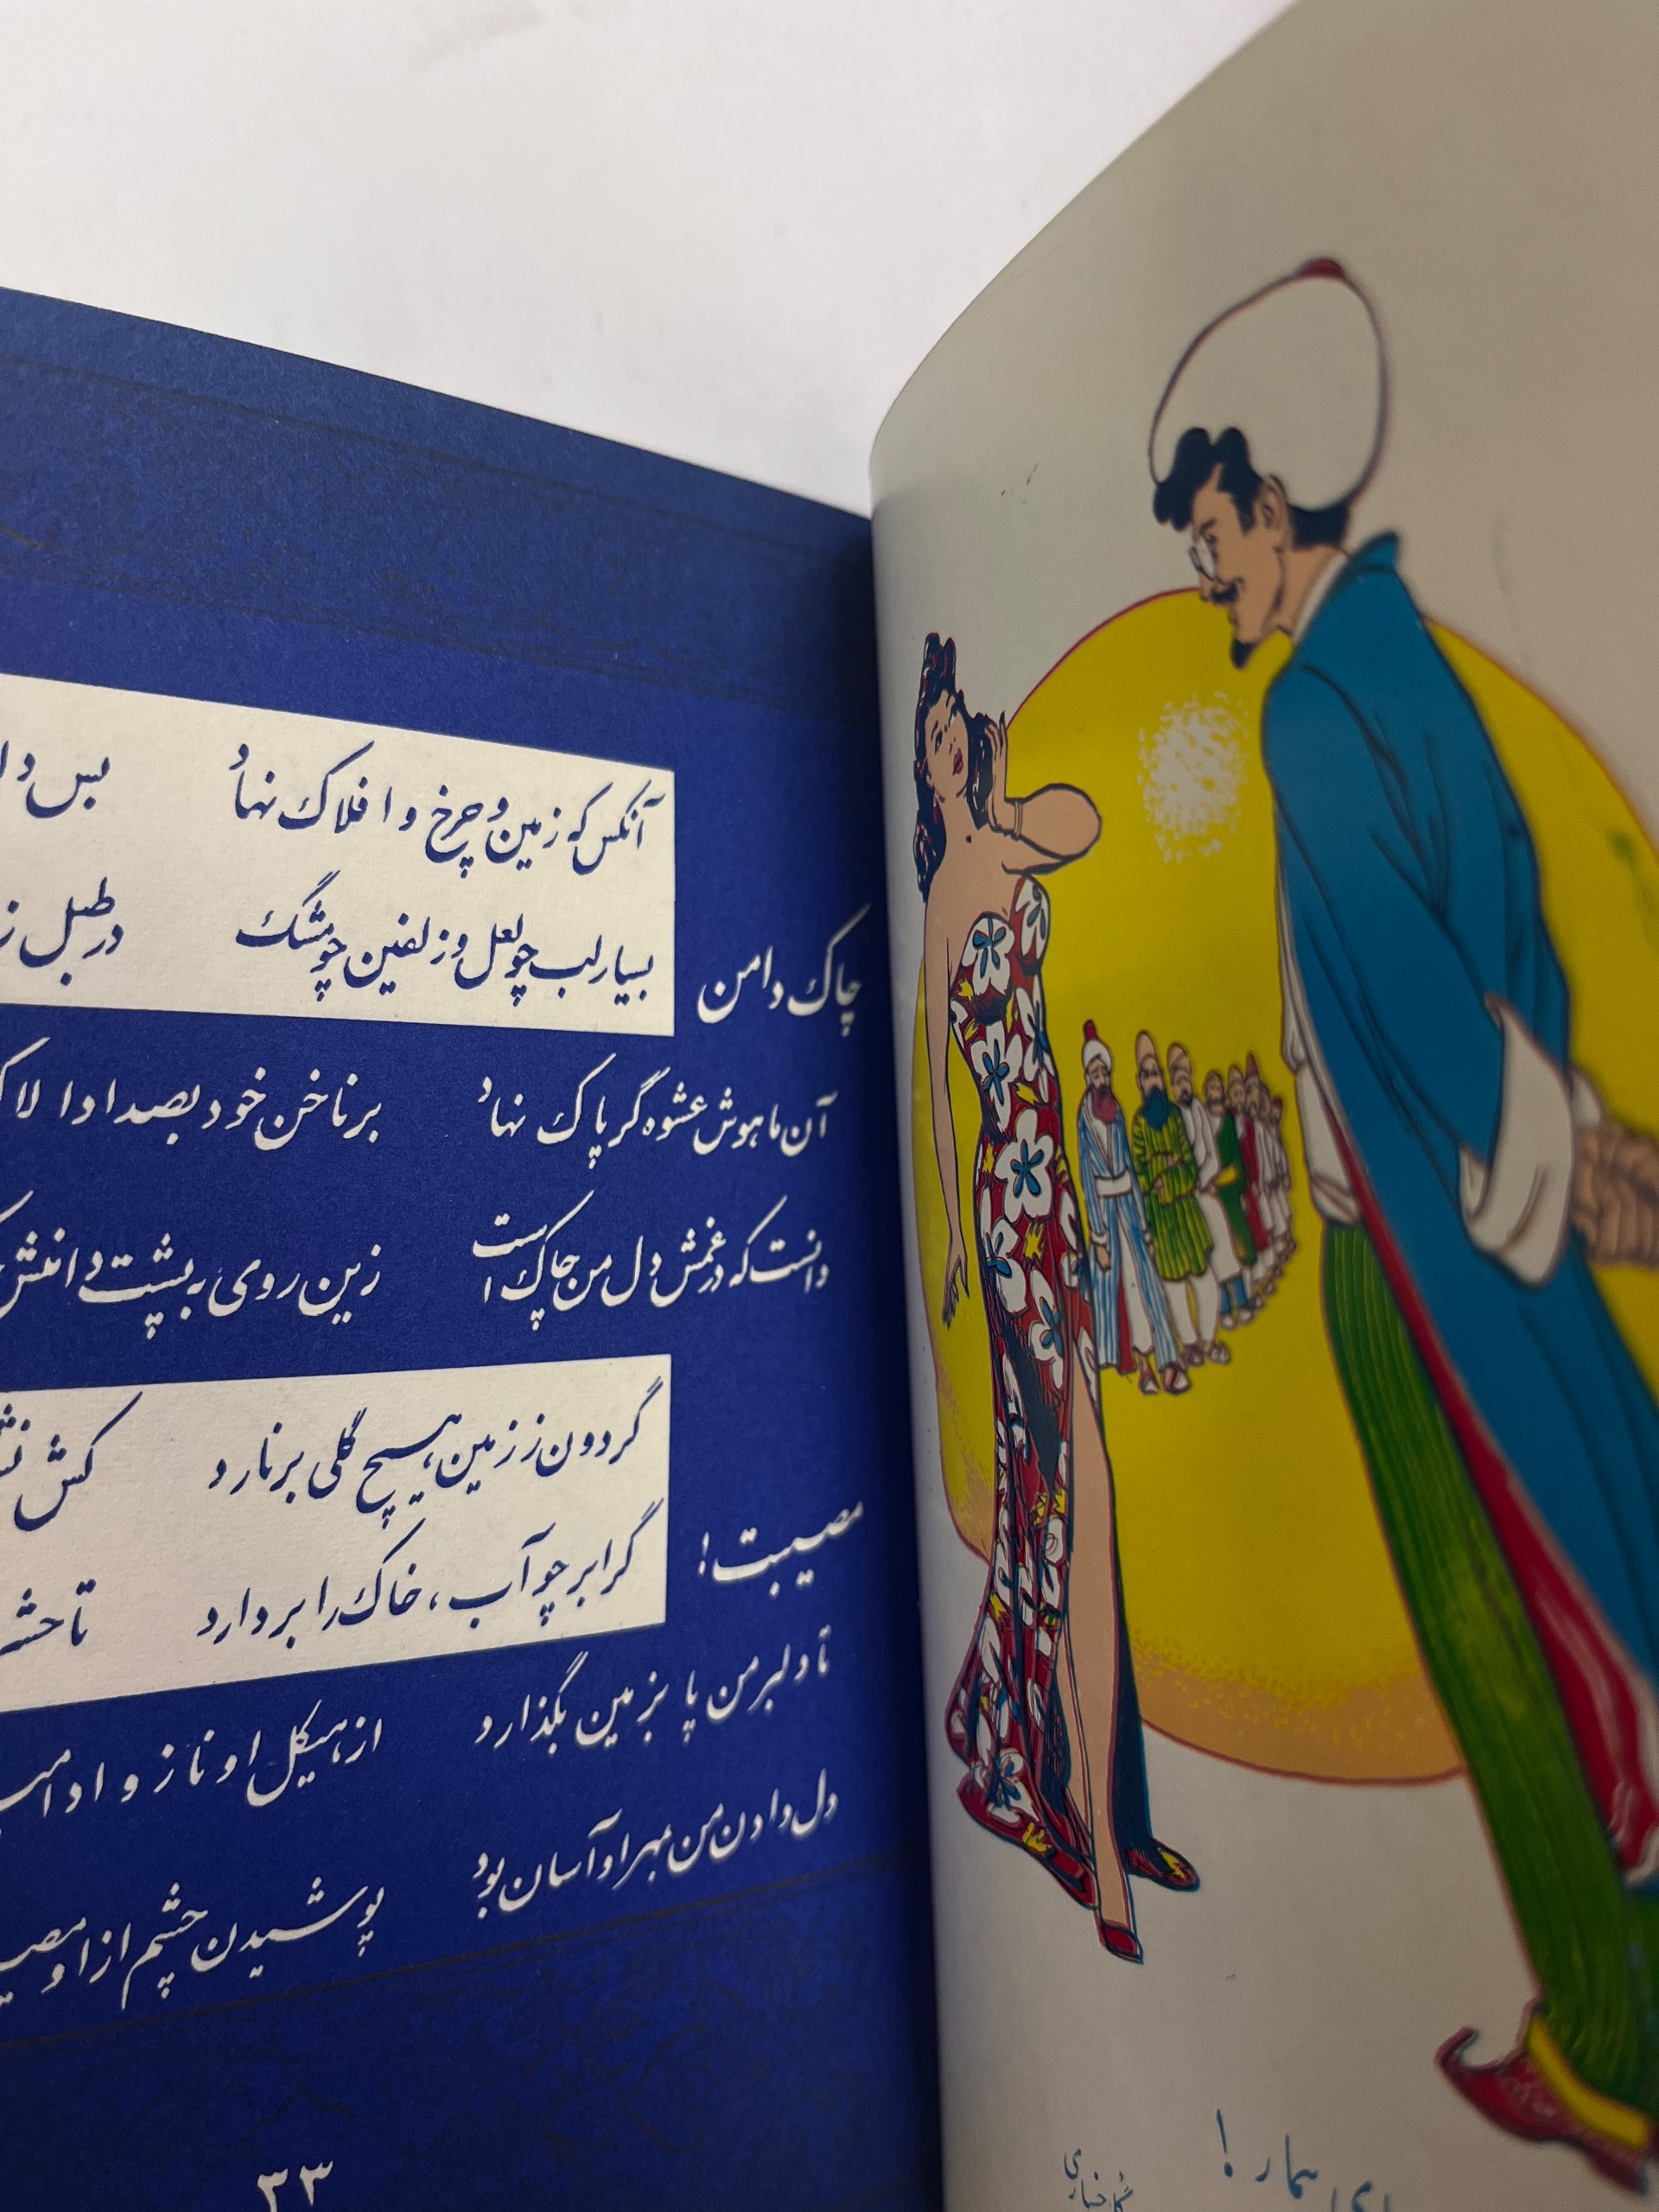 آنکس که زمین و چرخ و افلاک نهاد بس
بسیار لب چو لعل و زلفین چو مشک در طبل
چاک دامن
آن ماهوش عشوه گر پاک نهاد بر ناخن خود بصد ادا
دانست که در غمش دل من چاک است زین روی به پشت دامنش
گردون ز زمین هیچ گلی برنارد کش
گر ابر چو آب، خاک را بردارد تا حشر
مصیبت!
تا دلبر من پا بزمین بگذارد از هیکل او ناز و ادا
دل دادن من مهر او آسان بود پوشیدن چشم از او
۳۳